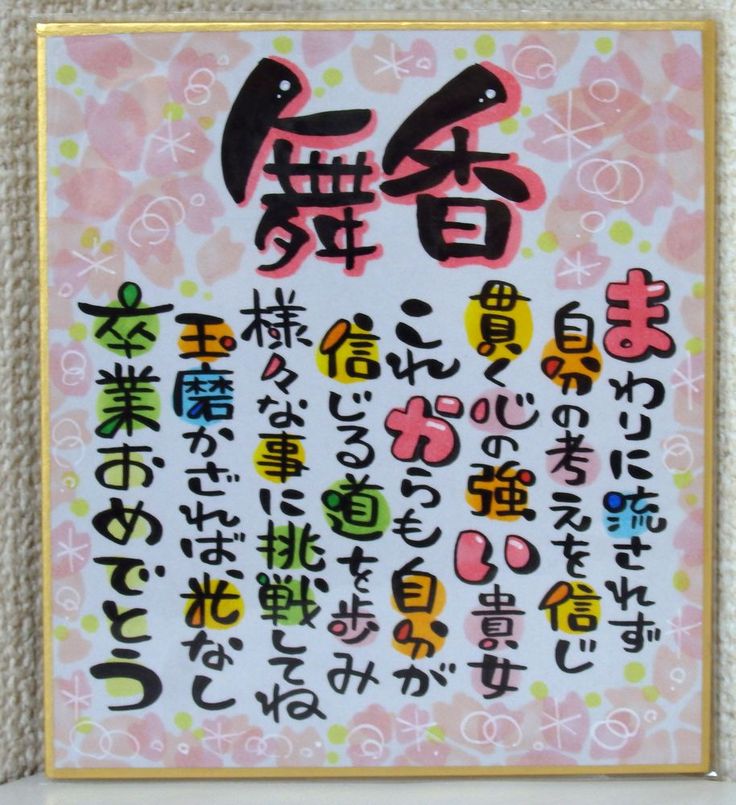 舞香
まわりに流されず
自分の考えを信じ
貫く心の強い貴女
これからも自分が
信じる道を歩み
様々な事に挑戦してね
玉磨かざれば、光なし
卒業おめでとう